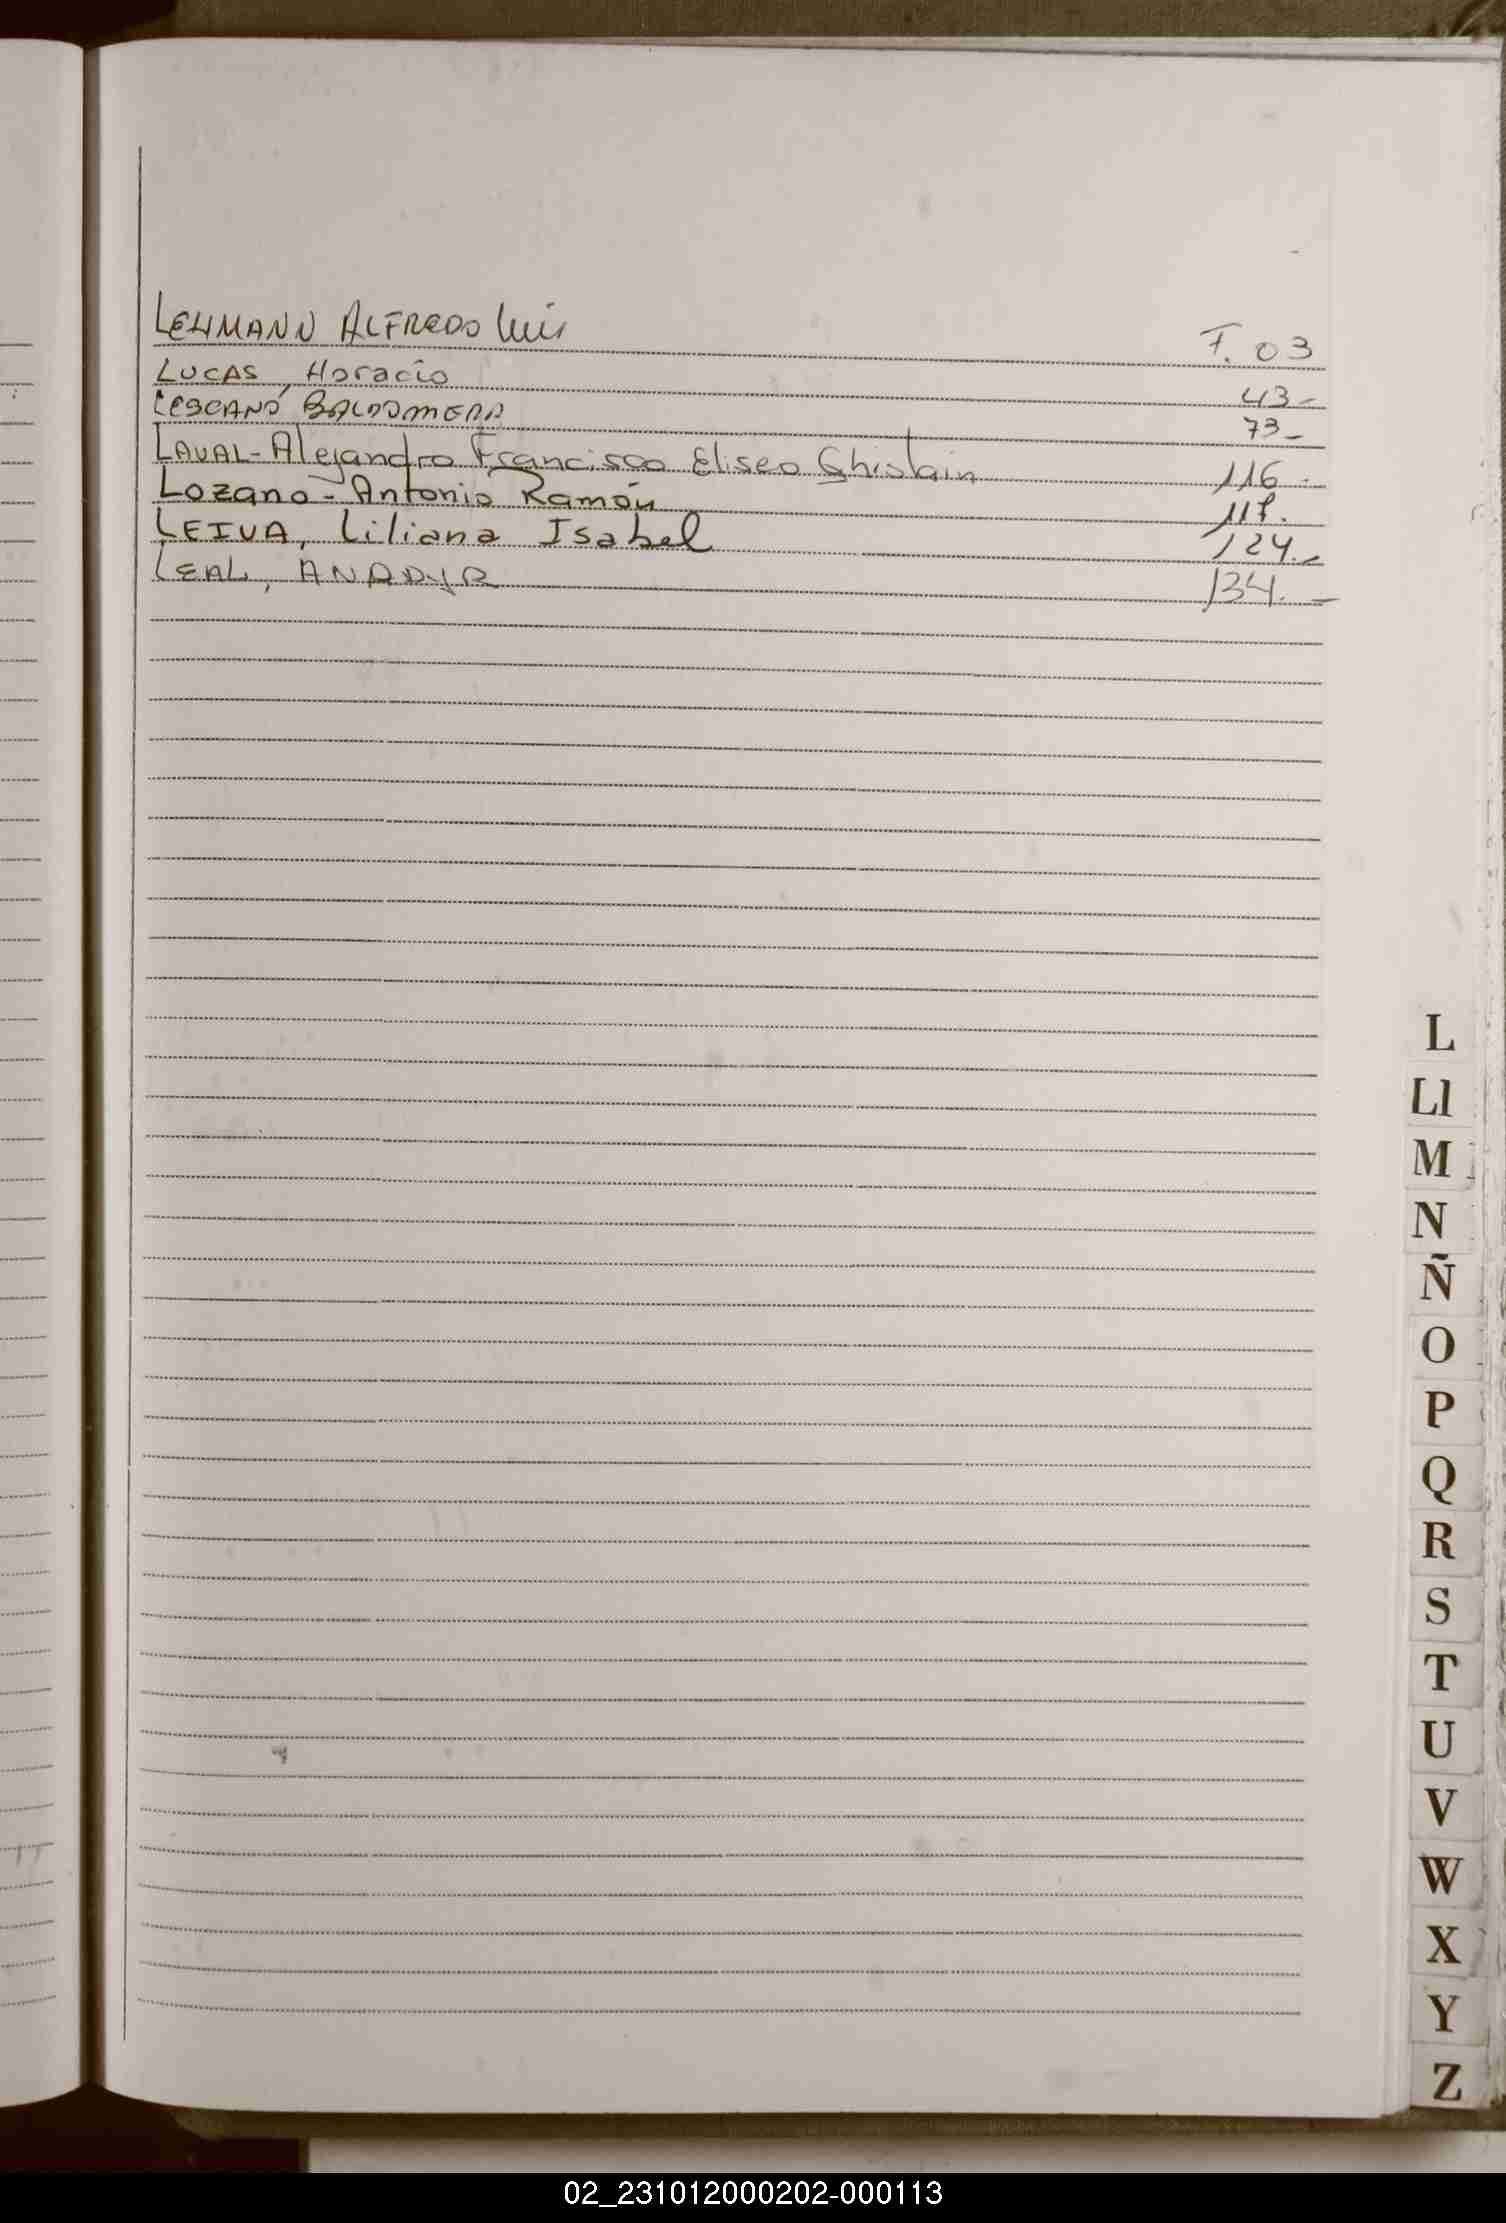 LEHMANN ALFREDO Luis F. 03
LUCAS, Horacio 43-
LESCANO BALDOMERA 73-
LAVAL-Alejandro Francisco Eliseo Ghislain 116.-
Lozano-Antonio Ramón 117.
LEIVA, Liliana Isabel 124.-
LEAL, ANADYR 134.-
L
Ll
M
N
Ñ
O
P
Q
R
S
T
U
V
W
X
Y
Z
02_231012000202-000113